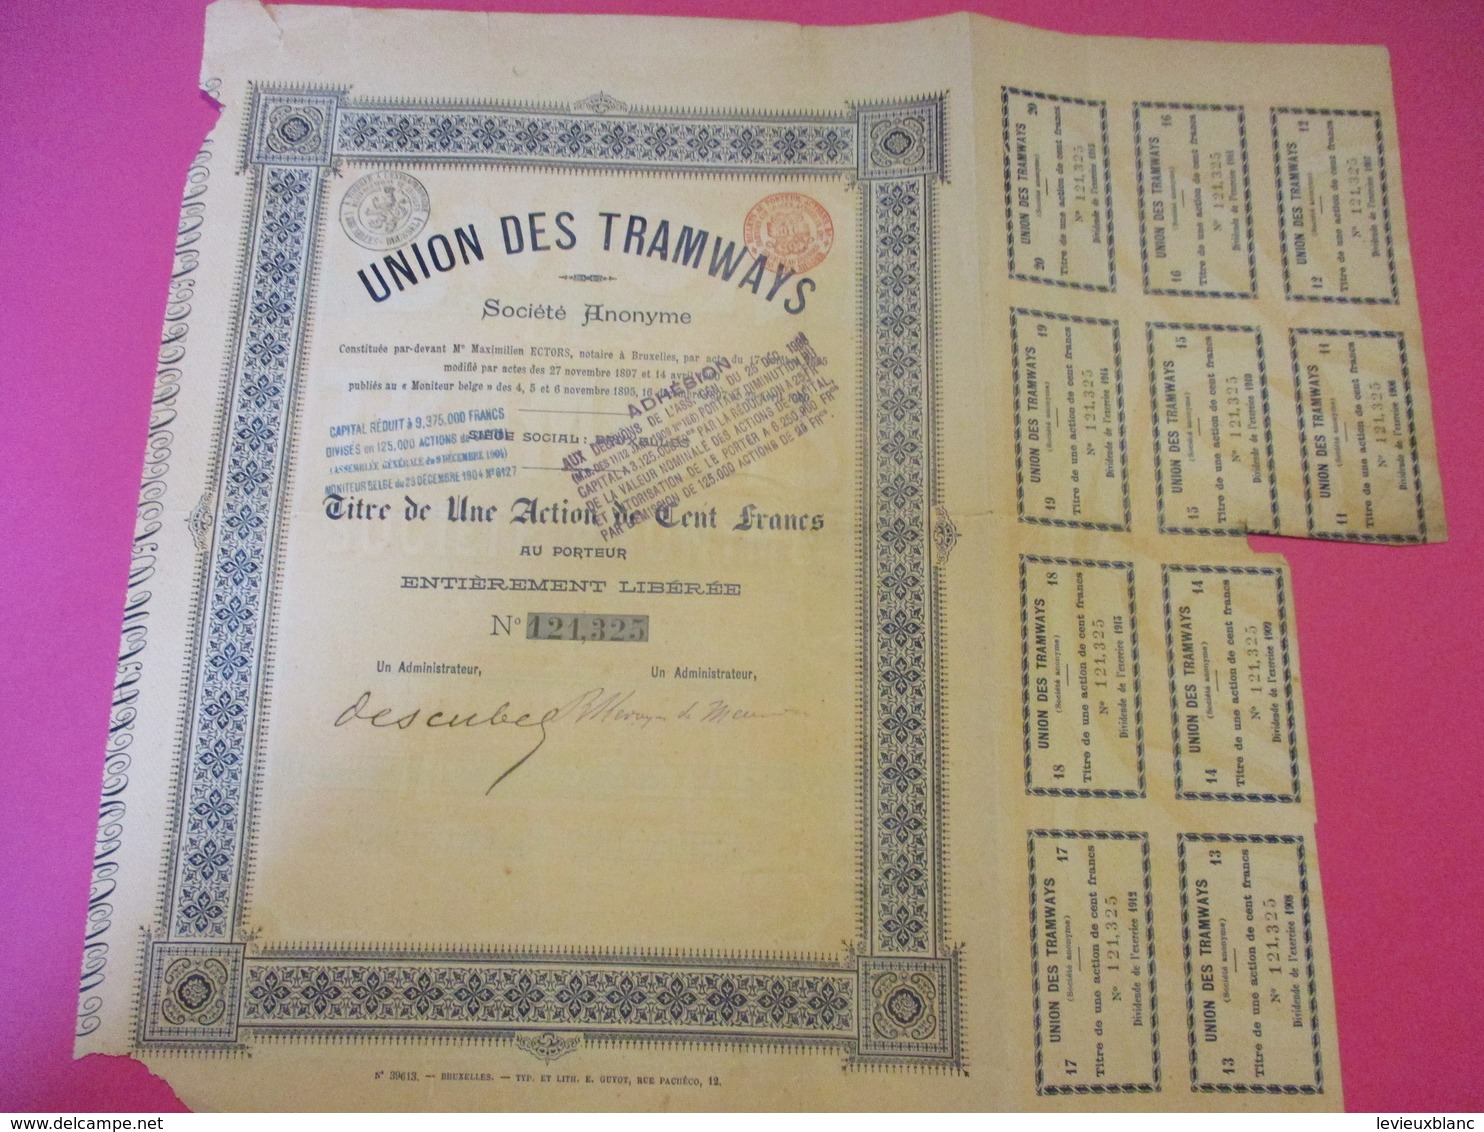 UNION DES TRAMWAYS
Société Anonyme
Constituée par-devant Me Maximilien ECTORS, notaire à Bruxelles, par acte du 17
modifié par actes des 27 novembre 1897 et 14 avril
publiés au « Moniteur belge » des 4, 5 et 6 novembre 1895, 16
CAPITAL RÉDUIT à 9,375,000 FRANCS
DIVISÉS en 125,000 ACTIONS de
(ASSEMBLÉE GÉNÉRALE du 9 DÉCEMBRE 1904)
MONITEUR BELGE du 23 DÉCEMBRE 1904 No 6127
SIÈGE SOCIAL:
ADHÉSION
AUX DÉCISIONS DE L'ASS. GÉN. DU 26 DEC.
CAPITAL A 3,125,000 PAR LA RÉDUCTION A 25
DE LA VALEUR NOMINALE DES ACTIONS DE CAPITAL,
ET AUTORISATION DE LE PORTER A 6,250,000 FRS
PAR L'ÉMISSION DE 125,000 ACTIONS DE 25 FRS
Titre de Une Action de Cent Francs
AU PORTEUR
ENTIÈREMENT LIBÉRÉE
No 121,325
Un Administrateur, Un Administrateur,
No 39613. — BRUXELLES. — TYP. ET LITH. E. GUYOT, RUE PACHÉCO, 12.
20 UNION DES TRAMWAYS 20
(Société anonyme)
Titre de une action de cent francs
No 121,325
Dividende de l'exercice 1915
16 UNION DES TRAMWAYS 16
(Société anonyme)
Titre de une action de cent francs
No 121,325
Dividende de l'exercice 1911
12 UNION DES TRAMWAYS 12
(Société anonyme)
Titre de une action de cent francs
No 121,325
Dividende de l'exercice 1907
19 UNION DES TRAMWAYS 19
(Société anonyme)
Titre de une action de cent francs
No 121,325
Dividende de l'exercice 1914
15 UNION DES TRAMWAYS 15
(Société anonyme)
Titre de une action de cent francs
No 121,325
Dividende de l'exercice 1910
11 UNION DES TRAMWAYS 11
(Société anonyme)
Titre de une action de cent francs
No 121,325
Dividende de l'exercice 1906
18 UNION DES TRAMWAYS 18
(Société anonyme)
Titre de une action de cent francs
No 121,325
Dividende de l'exercice 1913
14 UNION DES TRAMWAYS 14
(Société anonyme)
Titre de une action de cent francs
No 121,325
Dividende de l'exercice 1909
17 UNION DES TRAMWAYS 17
(Société anonyme)
Titre de une action de cent francs
No 121,325
Dividende de l'exercice 1912
13 UNION DES TRAMWAYS 13
(Société anonyme)
Titre de une action de cent francs
No 121,325
Dividende de l'exercice 1908
delcampe.net
levieuxblanc